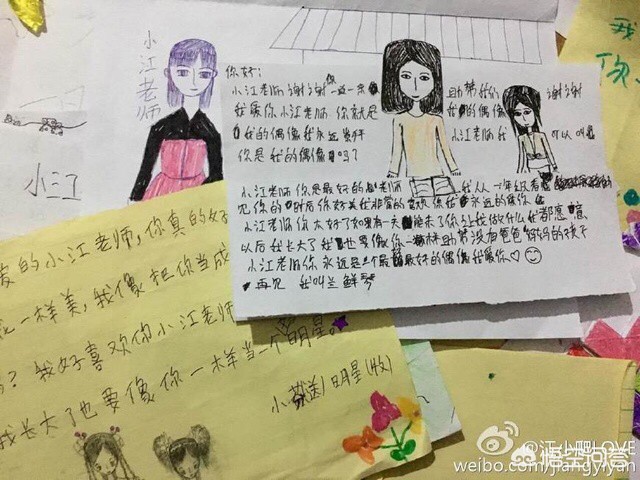 小江老师
小江
我
你
你好:
小江老师谢谢你一直来 助帮我们 谢谢
我最你小江老师 你就是 我的偶像
我的偶像我永远 小江老师我 可以叫
你是我的偶像 吗?
小江老师你是最好的 老师 我从一年级看
见你的时后你好美我非常的喜欢你我永远的像你
小江老师你太好了如果有一天 你让我做什么我都愿意
以后我长大了我也要像你一样助帮没有爸爸妈妈的孩子
小江老师你永远是 最最好的偶像我爱你♡
再见 我叫兰鲜琴
爱的小江老师,你真的好
一样美,我像把你当成
? 我好喜欢你小江老师
我长大了也要像你一样当一个明星。
小 送1明星(收)
@江小爬LOVE
悟空问答
weibo.com/jiangyiyan